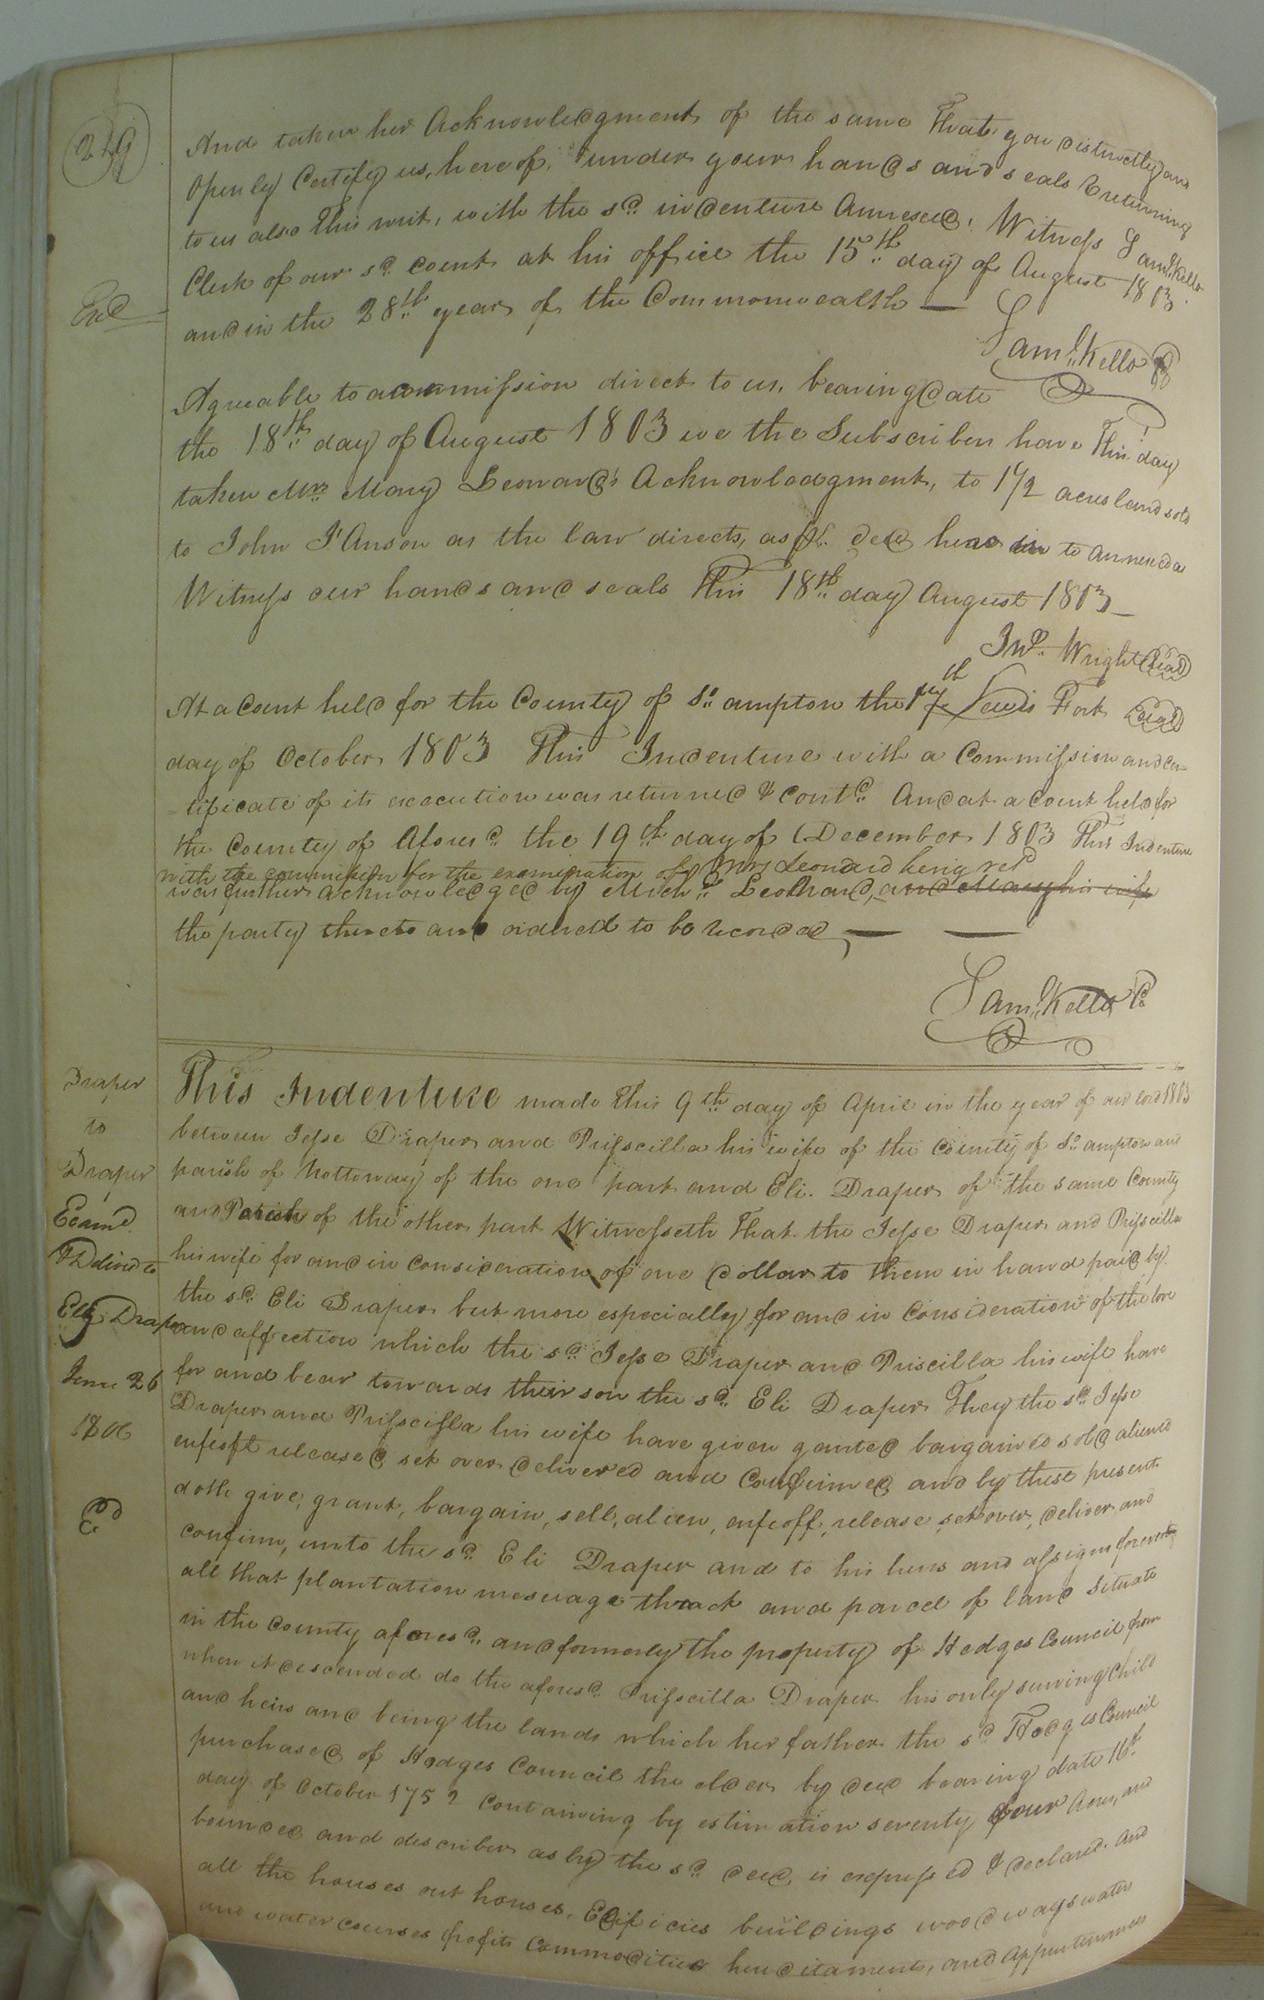 249
And taken her Acknowledgment of the same That you distinctly and
Openly Certify us, here of, under your hands and seals returning
to us also This writ, with the sd. indenture Annexed, Witness Saml. Kello
Clerk of our sd. Court at his office the 15th day of August 1803
and in the 28th year of the Commonwealth —
Exd
Saml. Kello
Agreable to a commission direct to us, bearing date
the 18th day of August 1803 we the Subscribers have This day
taken Mrs Mary Leonard's Acknowledgment, to 1 1/2 acres land sold
to John I'Anson as the law directs, as pr. deed here in to annexed as
Witness our hands and seals This 18th day August 1803 —
Jno. Wright Seal
At a Court held for the County of So. ampton the 17th Lewis Fort Seal
day of October 1803 This Indenture with a Commission and cer
tificate of its execution was returned & contd. And at a Court held for
the County of Aforesd the 19th day of December 1803 This Indenture
with the commission for the examination of Mrs Leonard being retd
was further acknowledged by Leonard, and Mary his wife
the party thereto and ordered to be Recorded —
Saml. Kello C
Draper
to
Draper
Examd
& Deliverd to
Eli Draper
June 26
1806
This Indenture made This 9th day of April in the year of our lord 1803
between Jesse Draper and Prisscilla his wife of the County of So. ampton and
parish of Nottoway of the one part and Eli. Draper of the same County
and Parish of the other part Witnesseth That the Jesse Draper and Prisscilla
his wife for and in consideration of one dollar to them in hand paid by
the sd. Eli Draper but more especially for and in Consideration of the love
and affection which the sd. Jesse Draper and Priscilla his wife have
for and bear towards their son the sd. Eli Draper They the sd. Jesse
Draper and Prisscilla his wife have given ganted bargained sold aliened
enfeoft released set over delivered and Confirmed and by these present
doth give, grant, bargain, sell, alien, enfeoff, release, set over, deliver and
confirm, unto the sd. Eli Draper and to his heirs and assigns forever
all that plantation messuage thract and parcel of land Situate
in the County aforesd. and formerly the property of Hodges Council from
when it descended do the aforesd. Prisscilla Draper his only surving child
and heirs and being the lands which her father the sd Hodges Council
purchased of Hodges Council the elder by deed bearing date 16th
day of October 1752 Containing by estimation seventy four Acres, and
bounded and describer as by the sd. deed, is expressed & declared. And
all the houses out houses, Edificies buildings wood ways waters
and water courses profits Commodities hereditaments, and Appurtenances